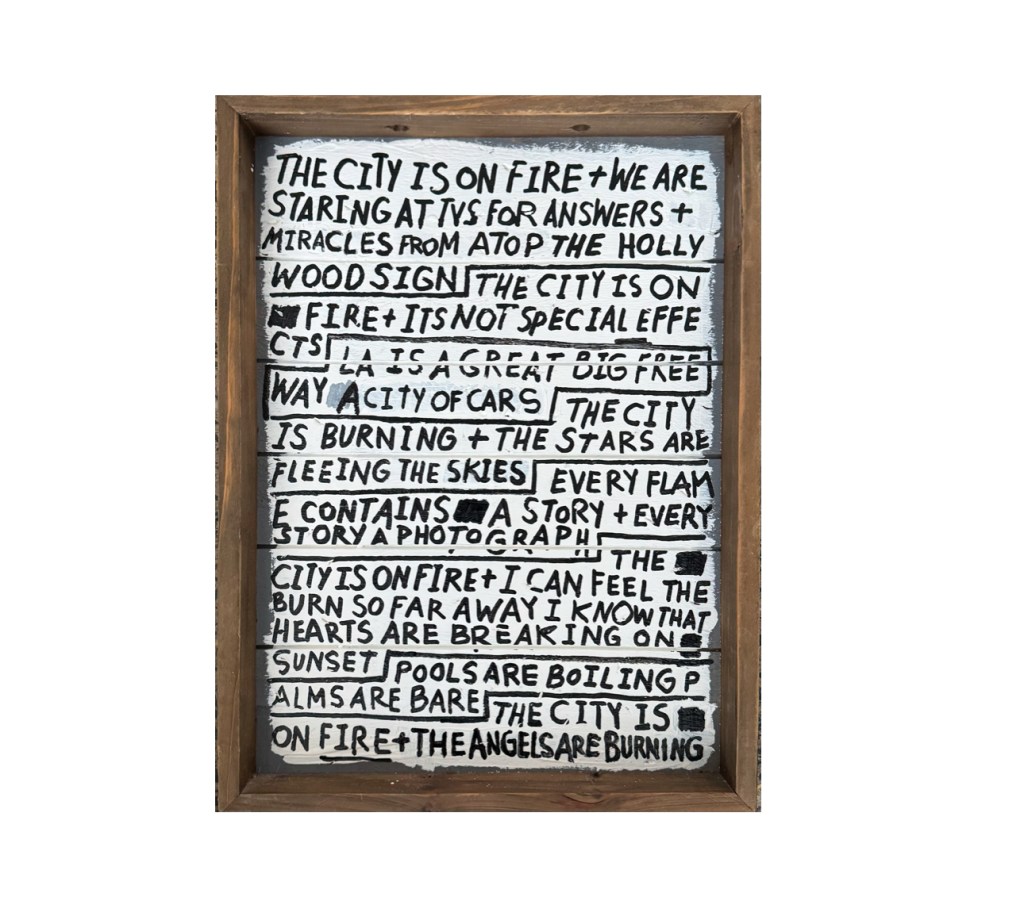 THE CITY IS ON FIRE + WE ARE
STARING AT TVS FOR ANSWERS +
MIRACLES FROM ATOP THE HOLLY
WOOD SIGN THE CITY IS ON
FIRE + ITS NOT SPECIAL EFFE
CTS LA IS A GREAT BIG FREE
WAY A CITY OF CARS THE CITY
IS BURNING + THE STARS ARE
FLEEING THE SKIES EVERY FLAM
E CONTAINS A STORY + EVERY
STORY A PHOTOGRAPH
THE
CITY IS ON FIRE + I CAN FEEL THE
BURN SO FAR AWAY I KNOW THAT
HEARTS ARE BREAKING ON
SUNSET POOLS ARE BOILING P
ALMS ARE BARE THE CITY IS
ON FIRE + THE ANGELS ARE BURNING